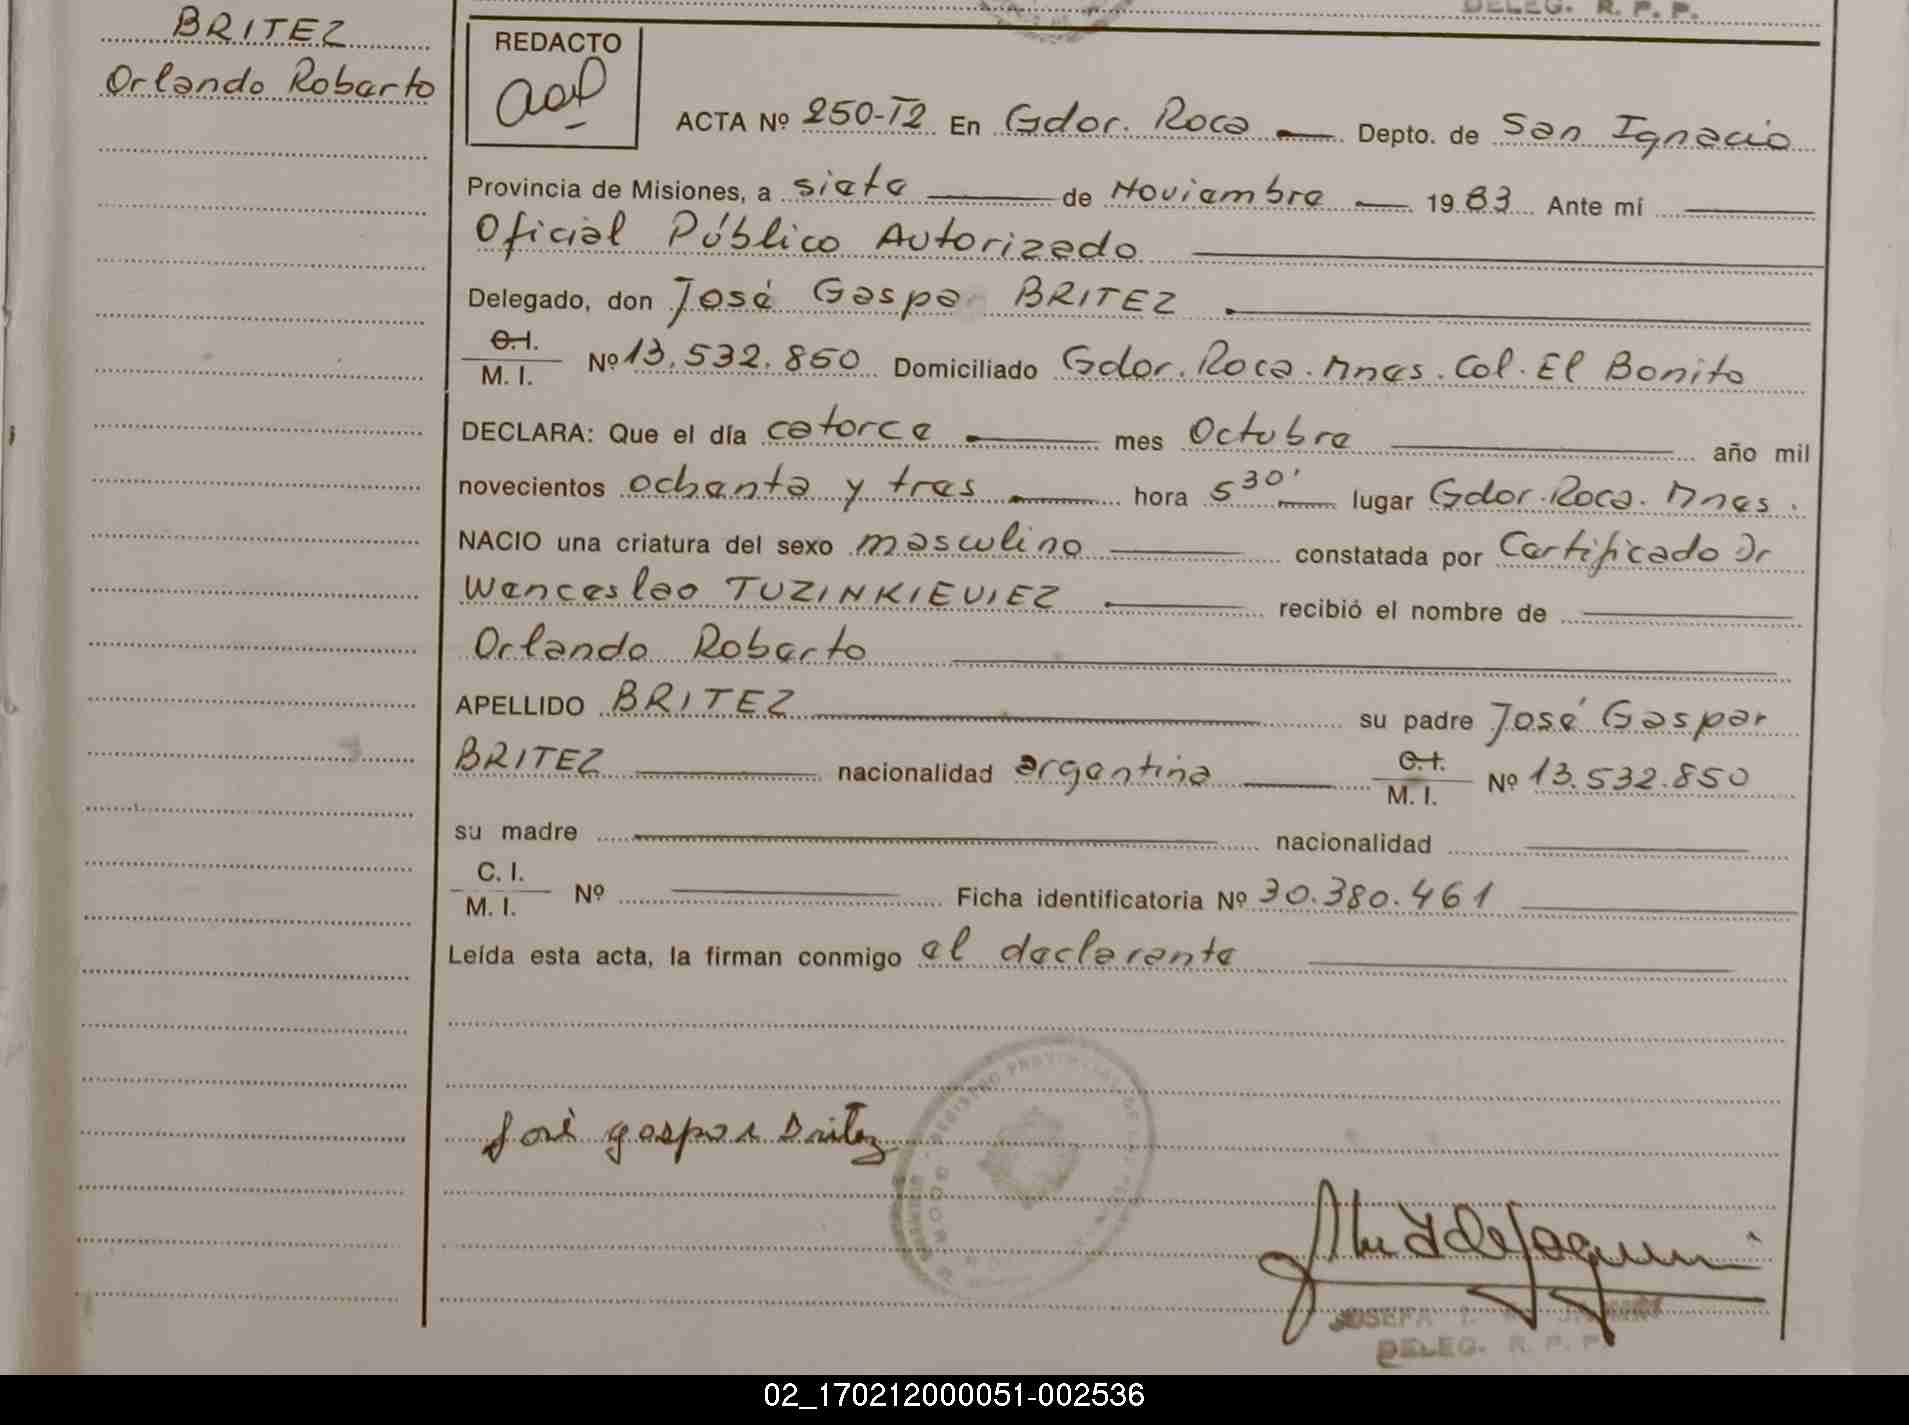 DELEG. R. P. P.
BRITEZ
Orlando Roberto
REDACTO
ACTA Nº 250-T2 En Gdor. Roca Depto. de San Ignacio
Provincia de Misiones, a siete de Noviembre 1983 Ante mí
Oficial Público Autorizado
Delegado, don José Gaspar BRITEZ
C.I.
M. I. Nº 13.532.850 Domiciliado Gdor. Roca. Mnes. Col. El Bonito
DECLARA: Que el día catorce mes Octubre año mil
novecientos ochenta y tres hora 5 30' lugar Gdor. Roca. Mnes.
NACIO una criatura del sexo masculino constatada por Certificado Dr
Wenceslao TUZINKIEVIEZ recibió el nombre de
Orlando Roberto
APELLIDO BRITEZ su padre José Gaspar
BRITEZ nacionalidad argentina C.I.
M. I. Nº 13.532.850
su madre nacionalidad
C. I.
M. I. Nº Ficha identificatoria Nº 30.380.461
Leída esta acta, la firman conmigo el declarante
José gaspar Britez
REGISTRO PROVINCIAL DE LAS
JOSEFA I.
DELEG. R. P. P.
02_170212000051-002536